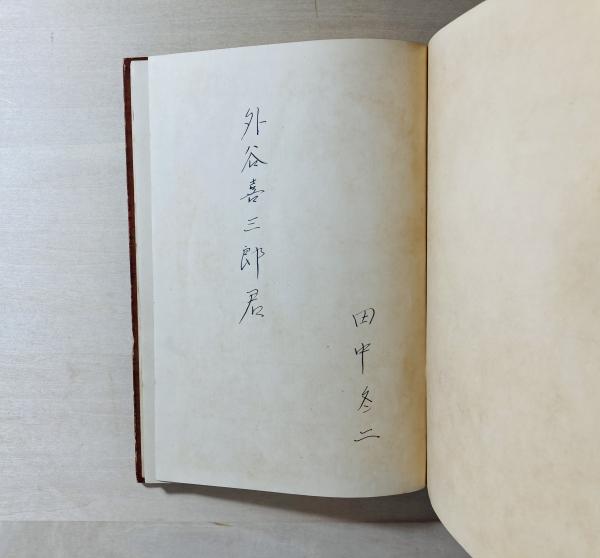 外谷喜三郎君
田中冬二